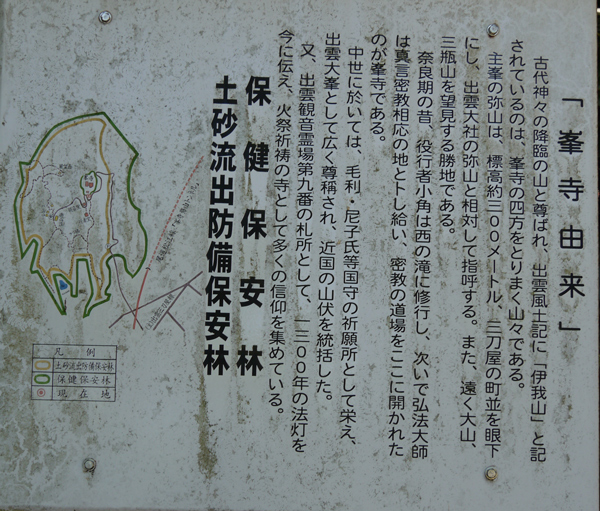 「峯寺由来」
古代神々の降臨の山と尊ばれ、出雲風土記に「伊我山」と記
されているのは、峯寺の四方をとりまく山々である。
主峯の弥山は、標高約三〇〇メートル、三刀屋の町並を眼下
にし、出雲大社の弥山と相対して指呼する。また、遠く大山、
三瓶山を望見する勝地である。
奈良期の昔、役行者小角は西の滝に修行し、次いで弘法大師
は真言密教相応の地とトし給い、密教の道場をここに開かれた
のが峯寺である。
中世に於いては、毛利・尼子氏等国守の祈願所として栄え、
出雲大峯として広く尊称され、近国の山伏を統括した。
又、出雲観音霊場第九番の札所として、一三〇〇年の法灯を
今に伝え、火祭祈祷の寺として多くの信仰を集めている。
保健保安林
土砂流出防備保安林
凡例
土砂流出防備保安林
保健保安林
現在地